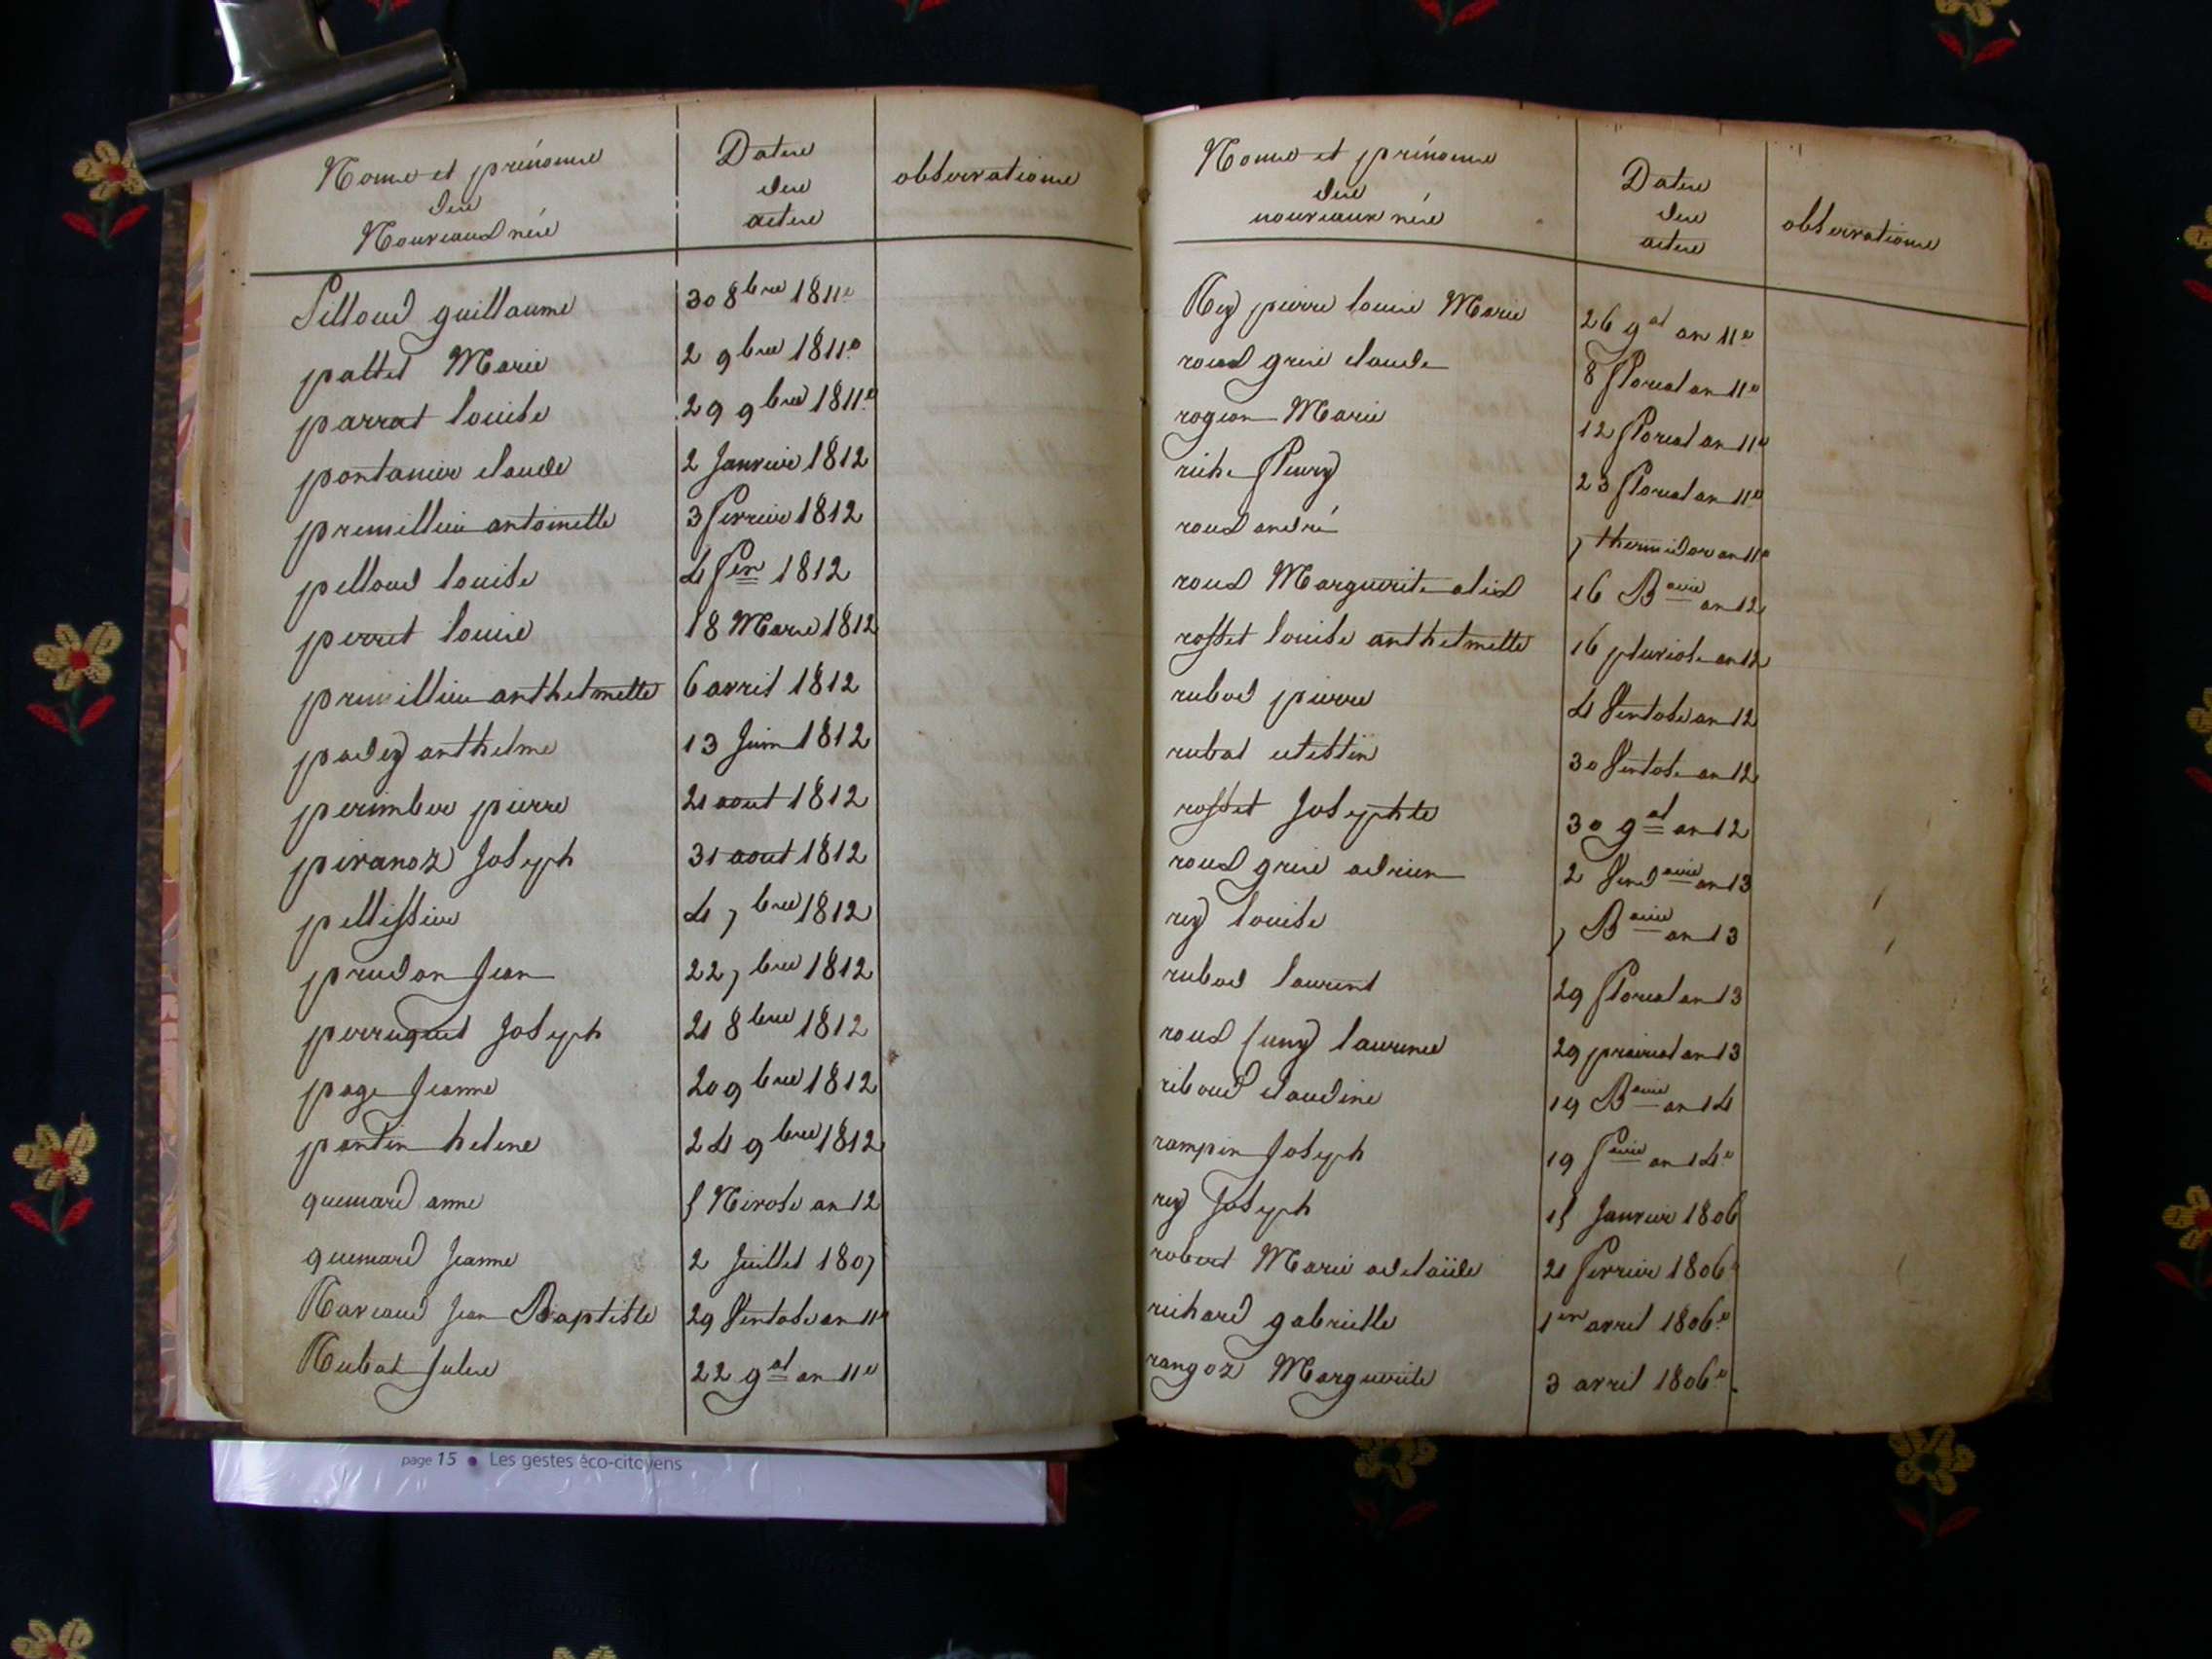 Noms et prénoms
des
Nouveaux nés
Dates
des
actes
observations
Pilloud guillaume 30 8bre 1811.
pattet Marie 2 9bre 1811.
parrat louise 29 9bre 1811.
pontanier claude 2 Janvier 1812
premillieu antoinette 3 fevrier 1812
pelloud louise 4 fer 1812
perret louis 18 Mars 1812
premillieu anthelmette 6 avril 1812
padey anthelme 13 Juin 1812
perimber pierre 21 aout 1812
piranoz Joseph 31 aout 1812
pellissier 4 7bre 1812
prudon Jean 22 7bre 1812
perruquet Joseph 21 8bre 1812
page Jeanne 20 9bre 1812
pontin helene 24 9bre 1812
quemard anne 5 Nivose an 12
quemard Jeanne 2 Juillet 1807
Raviaud Jean Baptiste 29 Ventose an 11e
Rubat Jules 22 gal an 11e
Noms et prénoms
des
nouveaux nés
Dates
des
actes
observations
Rey pierre louis Marie 26 gal an 11e
roux gris claude 8 floreal an 11e
rogeon Marie 12 floreal an 11e
riche fleury 23 floreal an 11e
roux andré 7 thermidor an 11e
roux Marguerite alix 16 Baire an 12
rosset louise anthelmette 16 pluviose an 12
rubod pierre 4 Ventose an 12
rubat celestin 30 Ventose an 12
rosset Josephte 30 gal an 12
roux gris adrien 2 Vendaire an 13
rey louise 7 Baire an 13
rubod laurent 29 floreal an 13
roux (uny) laurence 29 prairial an 13
riboud claudine 19 Baire an 14
rampin Joseph 19 faire an 14e
rey Joseph 15 Janvier 1806
robert Marie adelaïde 21 fevrier 1806
richard gabrielle 1er avril 1806.
rangoz Marguerite 3 avril 1806.
page 15 • Les gestes éco-citoyens